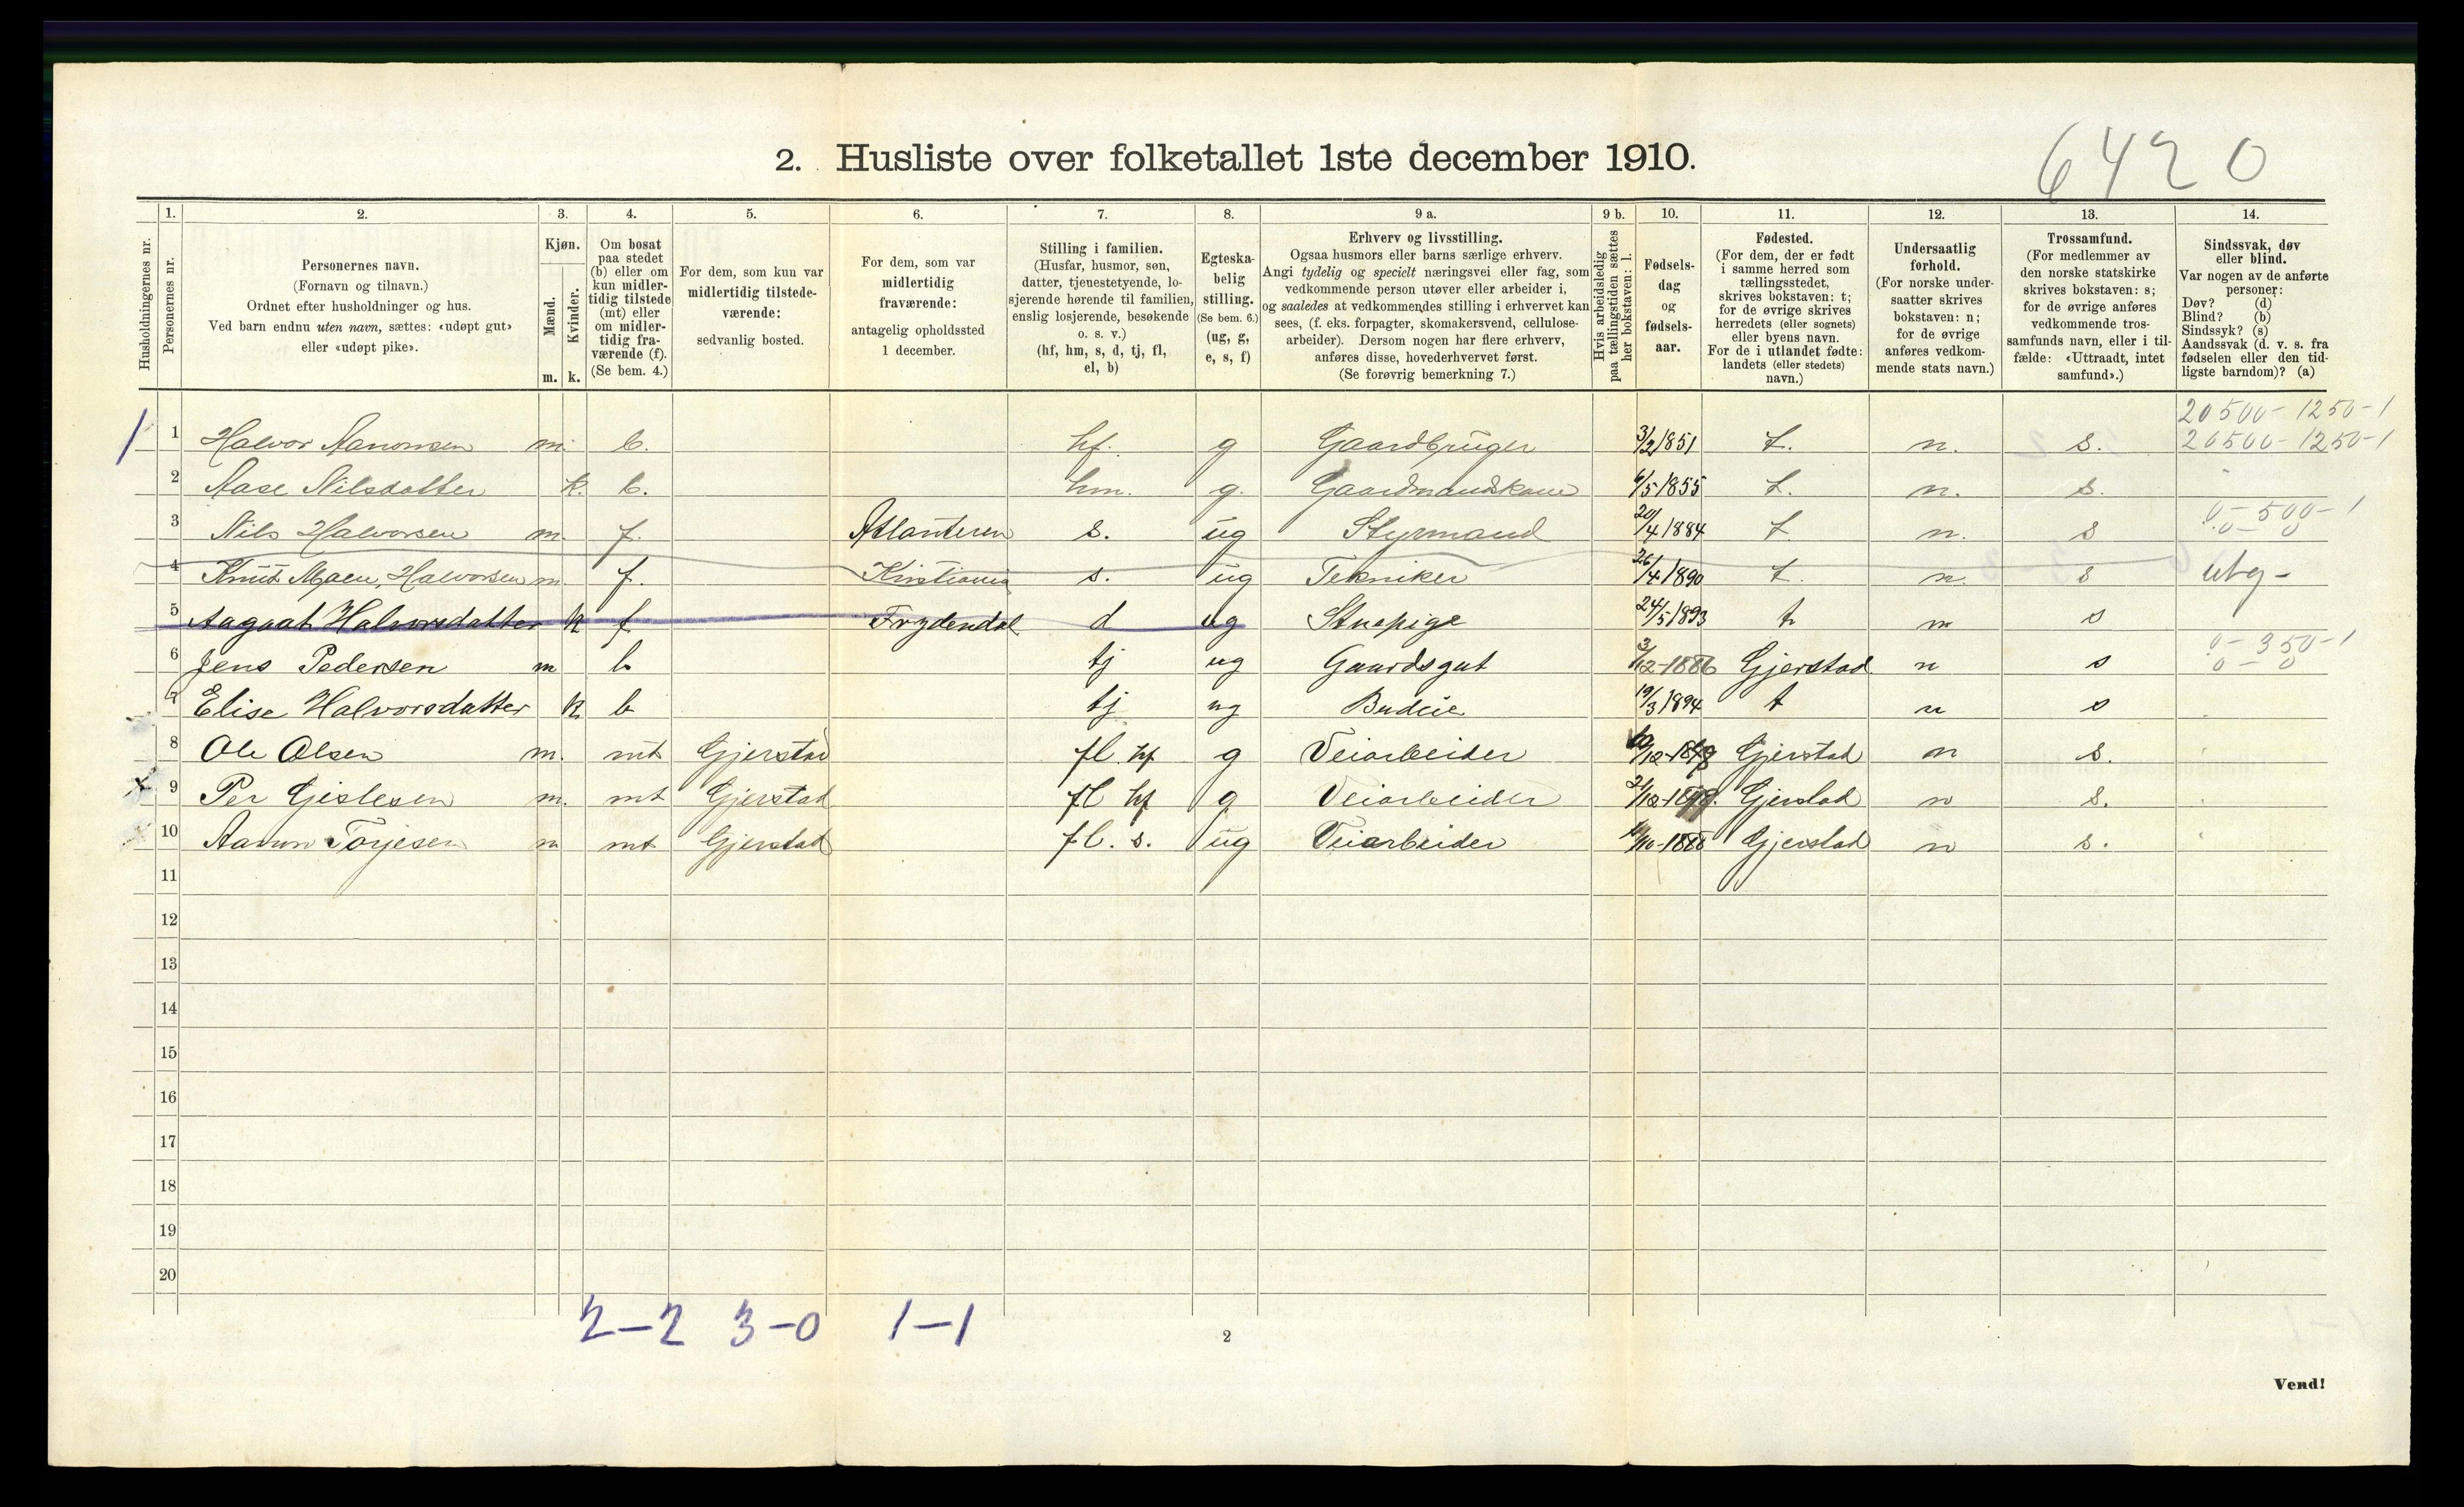 6420
2. Husliste over folketallet 1ste december 1910.
Husholdningernes nr.
1. Personernes nr.
2. Personernes navn. (Fornavn og tilnavn.) Ordnet efter husholdninger og hus. Ved barn endnu uten navn, sættes: «udøpt gut» eller «udøpt pike».
3. Kjøn. Mænd. m. Kvinder. k.
4. Om bosat paa stedet (b) eller om kun midlertidig tilstede (mt) eller om midlertidig fraværende (f). (Se bem. 4.)
5. For dem, som kun var midlertidig tilstedeværende: sedvanlig bosted.
6. For dem, som var midlertidig fraværende: antagelig opholdssted 1 december.
7. Stilling i familien. (Husfar, husmor, søn, datter, tjenestetyende, losjerende hørende til familien, enslig losjerende, besøkende o. s. v.) (hf, hm, s, d, tj, fl, el, b)
8. Egteskabelig stilling. (Se bem. 6.) (ug, g, e, s, f)
9 a. Erhverv og livsstilling. Ogsaa husmors eller barns særlige erhverv. Angi tydelig og specielt næringsvei eller fag, som vedkommende person utøver eller arbeider i, og saaledes at vedkommendes stilling i erhvervet kan sees, (f. eks. forpagter, skomakersvend, cellulosearbeider). Dersom nogen har flere erhverv, anføres disse, hovederhvervet først. (Se forøvrig bemerkning 7.)
9 b. Hvis arbeidsledig paa tællingstiden sættes her bokstaven: l.
10. Fødselsdag og fødselsaar.
11. Fødested. (For dem, der er født i samme herred som tællingsstedet, skrives bokstaven: t; for de øvrige skrives herredets (eller sognets) eller byens navn. For de i utlandet fødte: landets (eller stedets) navn.)
12. Undersaatlig forhold. (For norske undersaatter skrives bokstaven: n; for de øvrige anføres vedkommende stats navn.)
13. Trossamfund. (For medlemmer av den norske statskirke skrives bokstaven: s; for de øvrige anføres vedkommende trossamfunds navn, eller i tilfælde: «Uttraadt, intet samfund».)
14. Sindssvak, døv eller blind. Var nogen av de anførte personer: Døv? (d) Blind? (b) Sindssyk? (s) Aandssvak (d. v. s. fra fødselen eller den tidligste barndom)? (a)
20500 - 1250 - 1
1 1 Halvor Aanonsen m. b. hf. g Gaardbruger 3/2 1851 t. n. s. 20500 - 1250 - 1
2 Aase Nilsdatter k. b. hm. g. Gaardmandskone 6/5 1855 t. n. s.
0 - 500 - 1
3 Nils Halvorsen m. f. Atlanteren s. ug Styrmand 20/4 1884 t. n. s 0 - 0
4 Knut Maen, Halvorsen m. f. Kristiania s. ug Tekniker 26/4 1890 t. n. s utg -
5 Aagaat Halvorsdatter k f Frydendal d ug Stuepige 24/5 1893 t n s
0 - 350 - 1
6 Jens Pedersen m b tj ug Gaardsgut 3/12 - 1886 Gjerstad n s 0 - 0
7 Elise Halvorsdatter k b tj ug Budeie 19/3 1894 t n s
8 Ole Olsen m. mt Gjerstad fl hf g Veiarbeider Gjerstad n s.
x 9 Per Gislesen m. mt Gjerstad fl hf g Veiarbeider Gjerstad n s.
10 Torjesen m mt Gjerstad fl. s. ug Veiarbeider Gjerstad n s.
11
12
13
14
15
16
17
18
19
20
2 - 2 3 - 0 1 - 1
2
Vend!